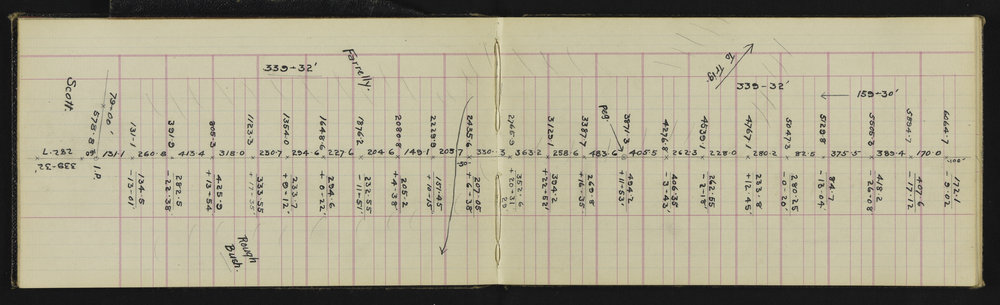 Farrelly.
To Trig.
339-32'
339-32'
159-30'
Scott
79-00'
578.8
131.1
391.9
805.3
1123.3
1354.0
1648.6
1876.2
2080.8
2229.9
2435.6
2765.9
3129.1
3387.7
peg.
3871.3
4276.8
4539.1
4767.1
5047.3
5129.8
5505.3
5894.7
6064.7
282.7
131.1
260.8
413.4
318.0
230.7
294.6
227.6
204.6
149.1
205.7
330.3
363.2
258.6
483.6
405.5
262.3
228.0
280.2
82.5
375.5
389.4
170.0
339-32'
I.P.
134.5
-13-01'
282.5
-22-38
425.9
+13-54
333.55
233.7
+9-12'
294.6
-0-22'
232.55
-11-51'
205.2
+4-38'
151.45
+10-15'
207.05
+6-38'
352.6
+20-31
394.2
+22-52'
269.8
+16-35'
494.2
+11-53'
406.35
-3-43'
262.55
-2-18'
233.8
+12-45'
280.25
-0-20'
84.7
-13-04'
418.2
-26-08
407.6
-17-12
172.1
-9-02
Rough
Bush.